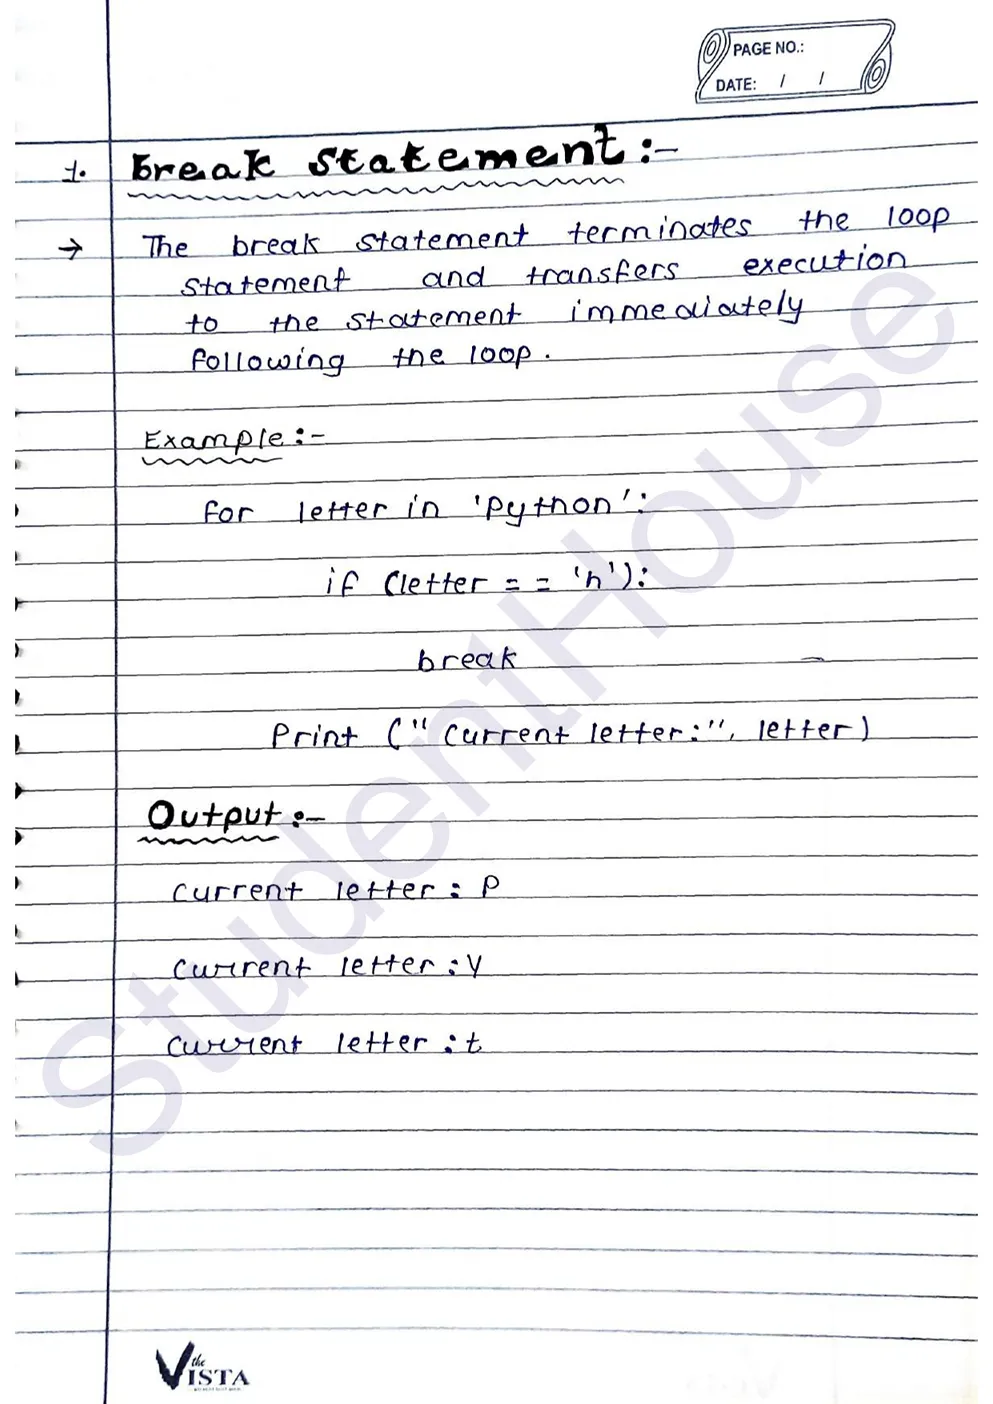 PAGE NO.:
DATE: / /
1. break statement :-
→ The break statement terminates the loop
statement and transfers execution
to the statement immediately
following the loop.
Example :-
for letter in 'python':
if (letter = = 'h'):
break
Print ("current letter:", letter)
Output :-
current letter : P
current letter : y
current letter : t
StudentHouse
the
VISTA